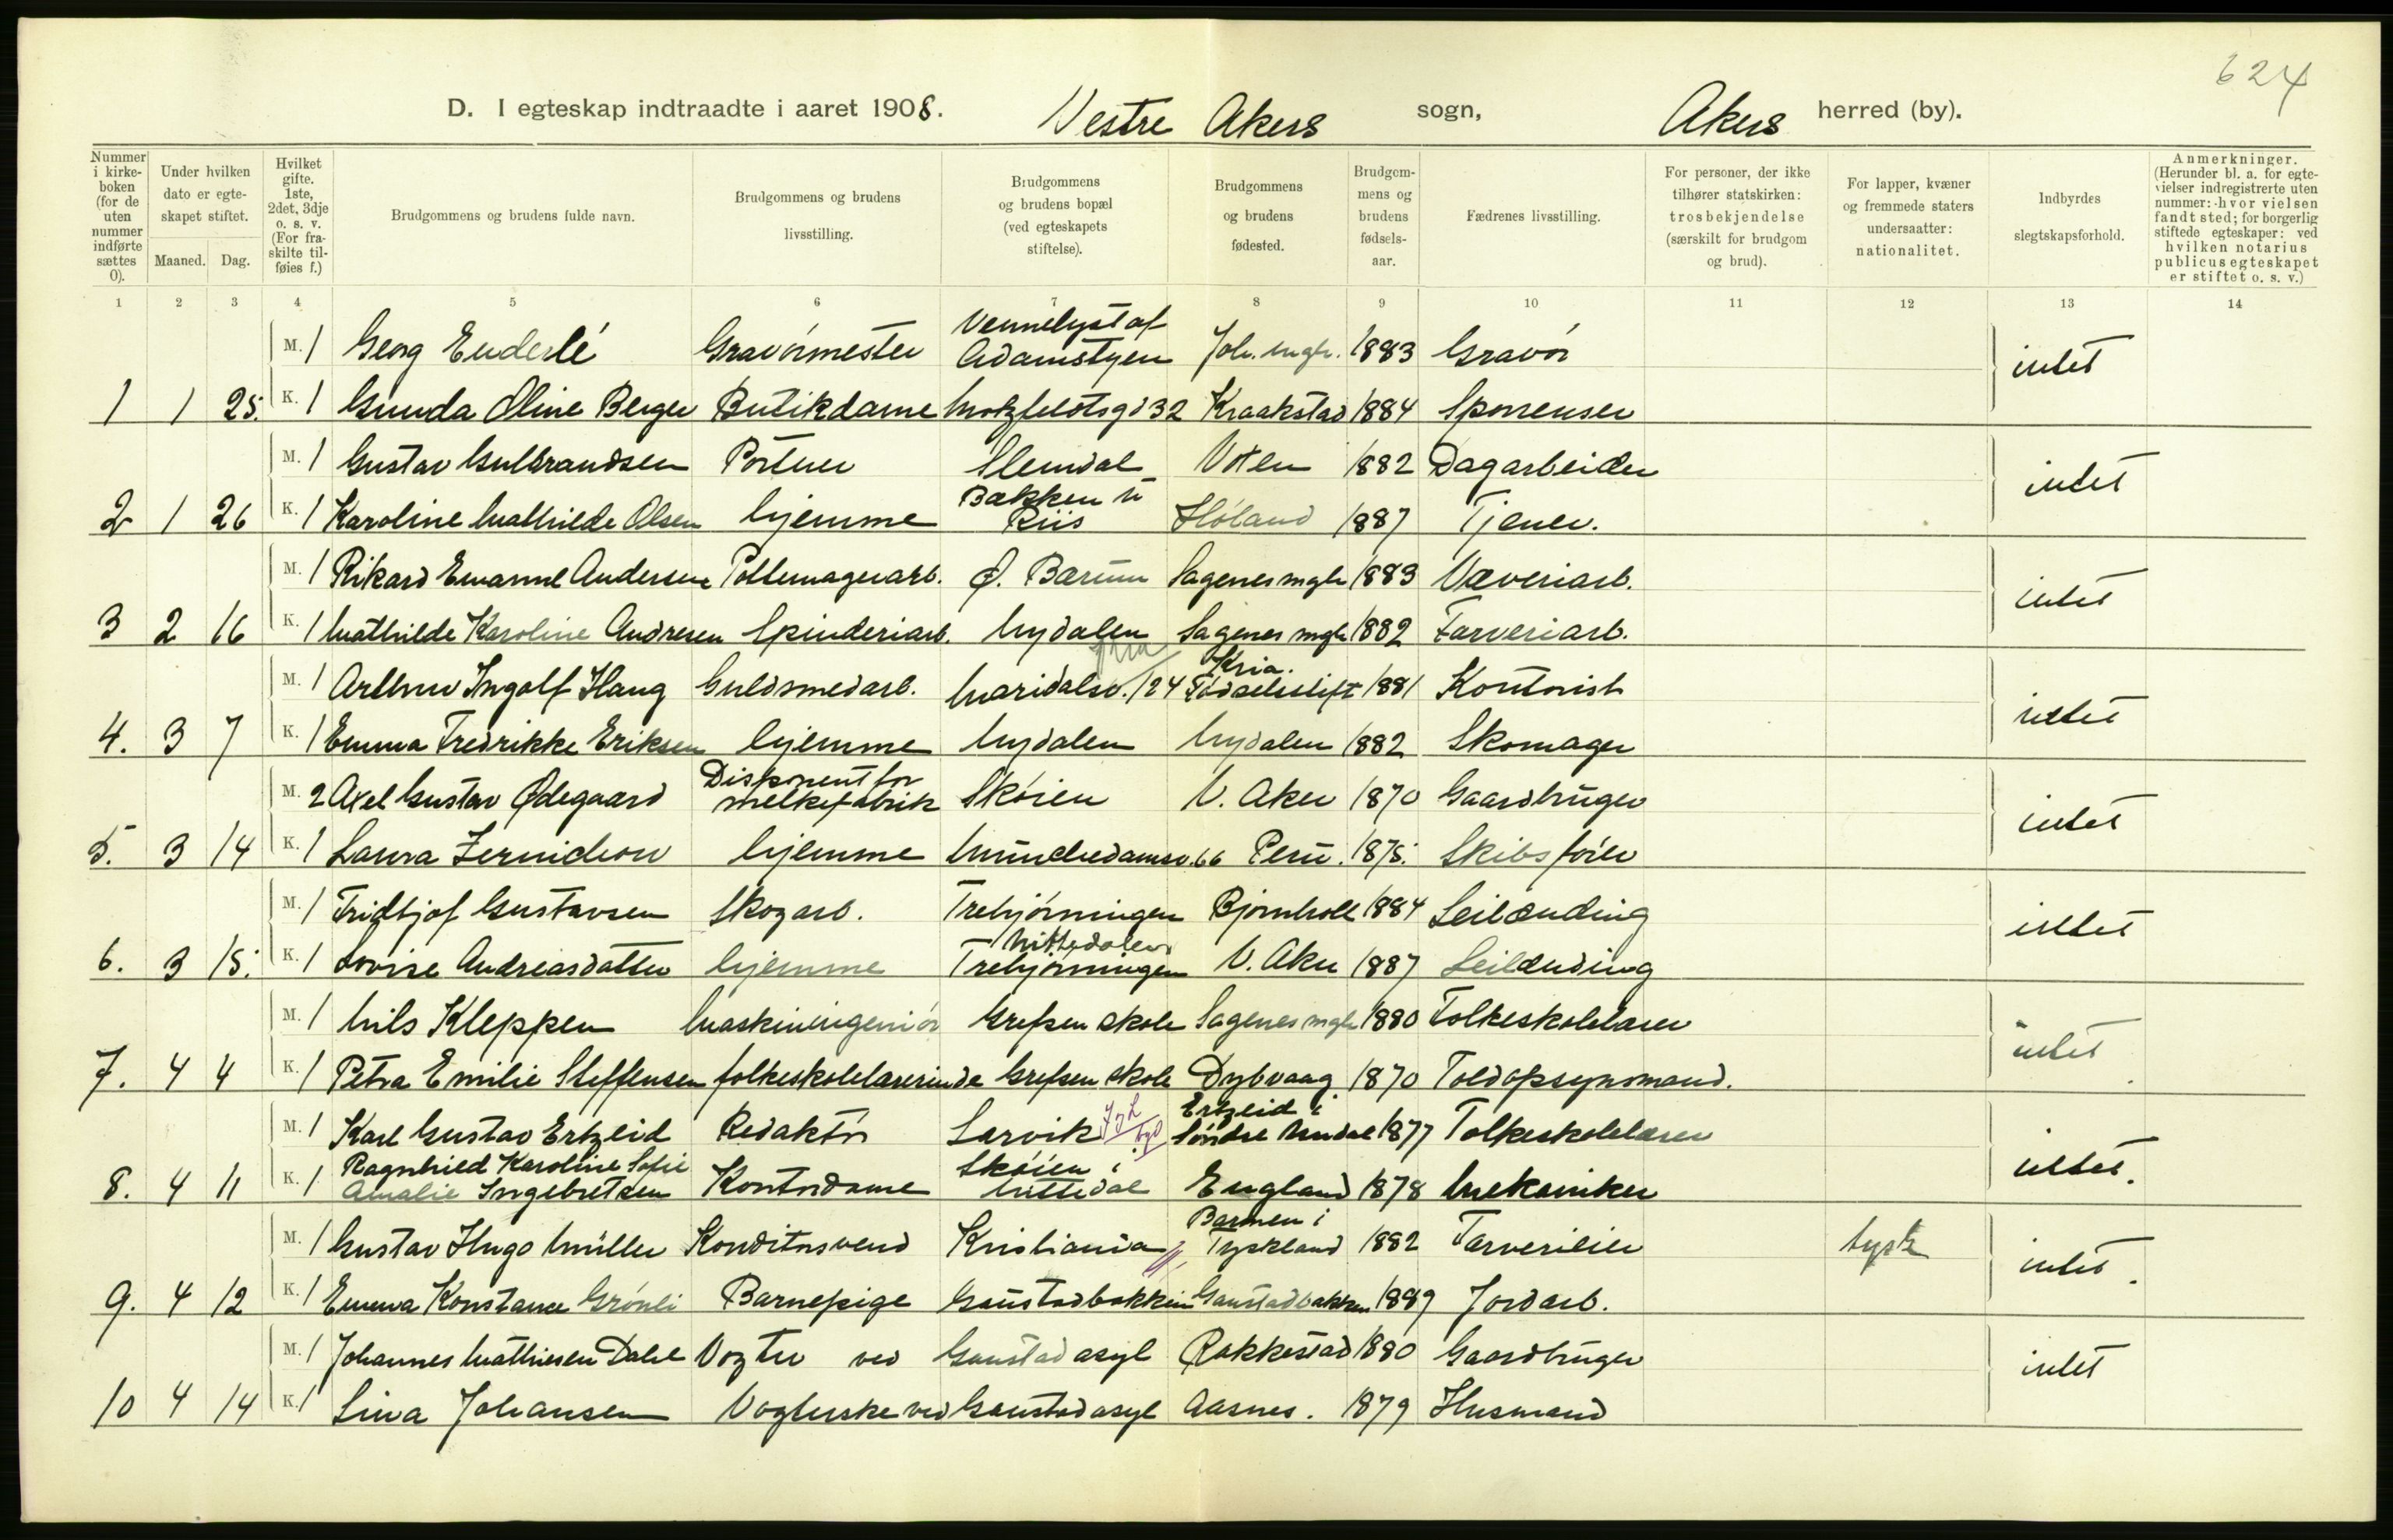 624
D. I egteskap indtraadte i aaret 1908. Vestre Akers sogn, Akers herred (by).
Nummer i kirke-boken (for de uten nummer indførte sættes 0). Under hvilken dato er egte-skapet stiftet. Maaned. Dag. Hvilket gifte. 1ste, 2det, 3dje o. s. v. (For fra-skilte til-føies f.) Brudgommens og brudens fulde navn. Brudgommens og brudens livsstilling. Brudgommens og brudens bopæl (ved egteskapets stiftelse). Brudgommens og brudens fødested. Brudgom-mens og brudens fødsels-aar. Fædrenes livsstilling. For personer, der ikke tilhører statskirken: trosbekjendelse (særskilt for brudgom og brud). For lapper, kvæner og fremmede staters undersaatter: nationalitet. Indbyrdes slegtskapsforhold. Anmerkninger. (Herunder bl. a. for egte-vielser indregistrerte uten nummer: hvor vielsen fandt sted; for borgerlig stiftede egteskaper: ved hvilken notarius publicus egteskapet er stiftet o. s. v.)
1 2 3 4 5 6 7 8 9 10 11 12 13 14
M. 1 Georg Enderlé Gravørmester Vennelyst af Adamstuen Joh. mgh. 1883 Gravør intet
1 1 25. K. 1 Gunda Oline Berger Butikdame Motzfeldtsgd 32 Kraakstad 1884 Sporrenser
M. 1 Gustav Gulbrandsen Portner Slemdal Volen 1882 Dagarbeider intet
2 1 26 K. 1 Karoline Mathilde Olsen hjemme Bakken Riis Høland 1887 Tjener.
M. 1 Rikard Emanuel Andersen Pottemagerarb. Ø. Bærum Sagenes mgh 1883 Væveriarb. intet
3 2 16 K. 1 Mathilde Karoline Andresen Spinderiarb. Nydalen Sagenes mgh 1882 Farveriarb.
M. 1 Arthur Ingolf Haug Guldsmedarb. Maridalsv. 124 Kria. Fødselsstift 1881 Kontorist intet
4. 3 7 K. 1 Emma Fredrikke Eriksen hjemme Nydalen Nydalen 1882 Skomager
M. 2 Axel Gustav Ødegaard Disponent for melkefabrik Skøien V. Aker 1870 Gaardbruger intet
5. 3 14 K. 1 Laura hjemme Munchedamsv. 66 Peru. 1875. Skibsfører
M. 1 Fridtjof Gustavsen Skogarb. Trehjørningen Bjørnholt 1884 Leilænding intet
6. 3 15. K. 1 Lovise Andreasdatter hjemme Nittedalen Trehjørningen V. Aker 1887 Leilænding
M. 1 Nils Kleppen Maskiningeniør Grefsen skole Sagenes mgh 1880 Folkeskolelærer intet
7. 4 4 K. 1 Petra Emilie Steffensen folkeskolelærerinde Grefsen skole Dybvaag 1870 Toldopsynsmand.
M. 1 Karl Gustav Ertzeid Redaktør Larvik Ertzeid i Søndre Undal 1877 Folkeskolelærer intet.
8. 4 11 K. 1 Ragnhild Karoline Sofie Amalie Ingebretsen Kontordame Skøien i Nittedal England 1878 Mekaniker
M. 1 Gustav Hugo Müller Konditorsvend Kristiania Barmen i Tyskland 1882 Farverieier tysk intet.
9. 4 12 K. 1 Emma Konstance Grønli Barnepige Gaustadbakken Gaustadbakken 1889 Jordarb.
M. 1 Johannes Mathiesen Dahl Vogter ved Gaustad asyl Rakkestad 1880 Gaardbruger intet
10 4 14 K. 1 Lina Johansen Vogterske ved Gaustad asyl Aasnes. 1879 Husmand